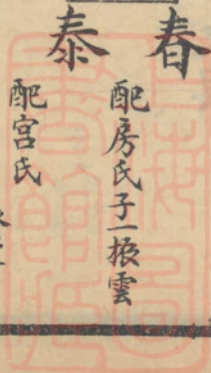 春
配房氏子一振雲
泰
配宮氏